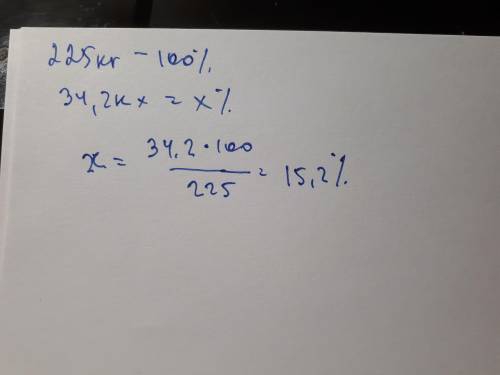 225кг - 100%.
34,2кх = x%
x = 34,2 · 100 / 225 = 15,2%.